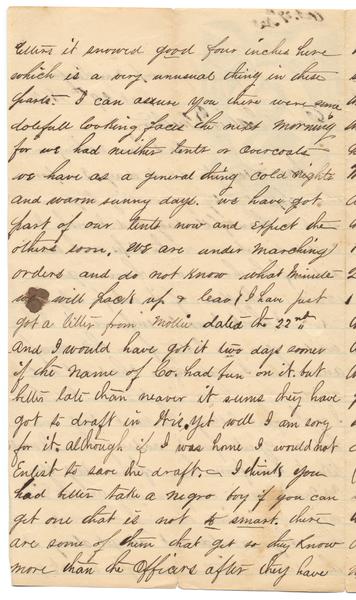 letters it snowed good four inches here
which is a very unusual thing in these
parts. I can assure you there were some
dolefull looking faces the next morning
for we had neither tents or overcoats
we have as a general thing cold nights
and warm sunny days. we have got
part of our tents now and expect the
others soon. We are under marching
orders and do not know what minute
we will pack up & leav I have just
got a letter from Mollie dated the 22nd
And I would have got it two days sooner
if the name of Co. had bun on it. but
better late than neaver it seems they have
got to draft in yet well I am sory
for it. although if I was home I would not
Enlist to save the draft. I think you
had better take a negro boy if you can
get one that is not to smart. there
are some of them that get so they know
more than the Officers after they have